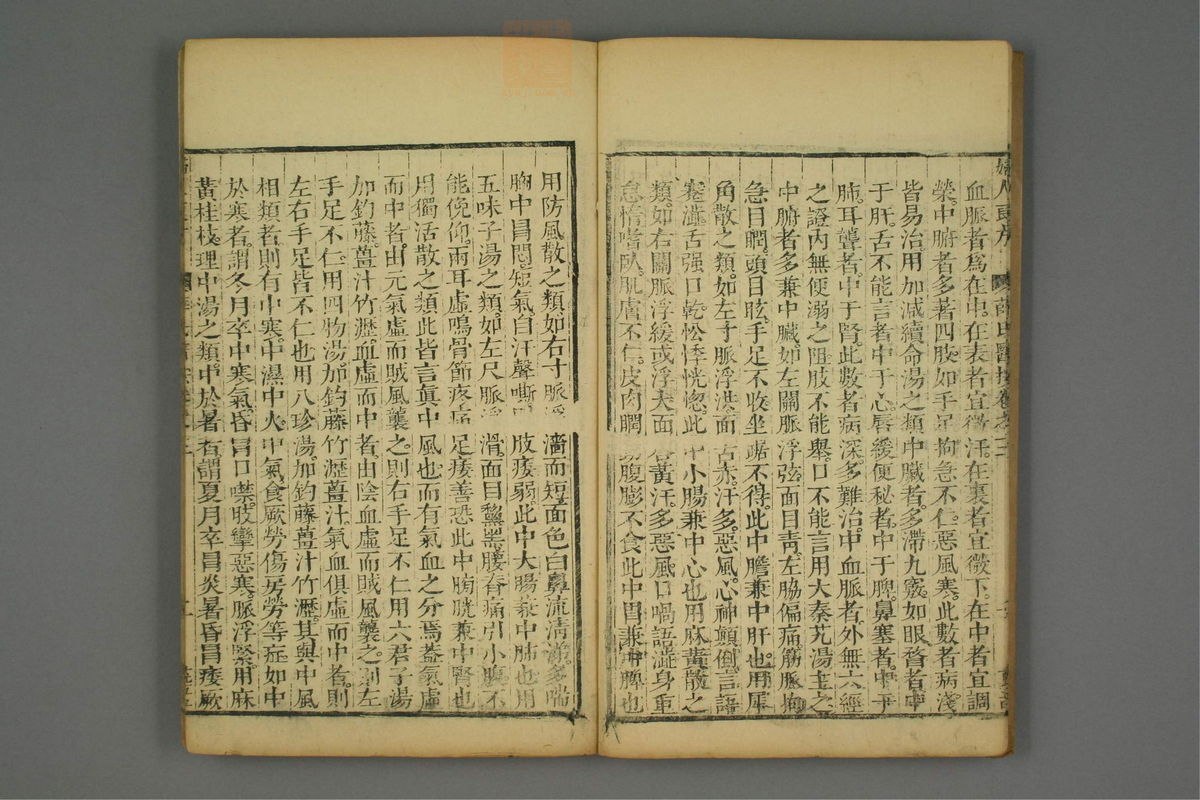 血脈者爲在中在表者宜微汗在裏者宜微下在中者宜調
榮中腑者多著四肢如手足拘急不仁惡風寒此數者病淺
皆易治用加減續命湯之類中臟者多滯九竅如眼瞀者中
于肝舌不能言者中于心唇緩便秘者中于脾鼻塞者中于
肺耳聾者中于腎此數者病深多難治中血脈者外無六經
之證內無便溺之阻肢不能舉口不能言用大秦艽湯主之
中腑者多兼中臟如左關脈浮弦面目青左脇偏痛筋脈拘
急目瞤頭目眩手足不收坐踞不得此中膽兼中肝也用犀
角散之類如左寸脈浮洪面舌赤汗多惡風心神顛倒言語
蹇澁舌强口乾忪悸恍惚此中小腸兼中心也用麻黃散之
類如右關脈浮緩或浮大面黃汗多惡風口喎語澁身重
怠惰嗜臥肌膚不仁皮肉瞤動腹膨不食此中胃兼中脾也
用防風散之類如右寸脈浮濇而短面色白鼻流清涕多喘
胸中冒悶短氣自汗聲嘶肢痿弱此中大腸兼中肺也用
五味子湯之類如左尺脈浮滑面目黧黑腰脊痛引小腹不
能俛仰兩耳虛鳴骨節疼痛足痿善恐此中膀胱兼中腎也
用獨活散之類此皆言眞中風也而有氣血之分焉蓋氣虛
而中者由元氣虛而賊風襲之則右手足不仁用六君子湯
加鈎藤薑汁竹瀝血虛而中者由陰血虛而賊風襲之則左
手足不仁用四物湯加鈎藤竹瀝薑汁氣血俱虛而中者則
左右手足皆不仁也用八珍湯加鈎藤薑汁竹瀝其與中風
相類者則有中寒中濕中火中氣食厥勞傷房勞等症如中
於寒者謂冬月卒中寒氣昏冒口噤肢攣惡寒脈浮緊用麻
黃桂枝理中湯之類中於暑者謂夏月卒冒炎暑昏冒痿厥